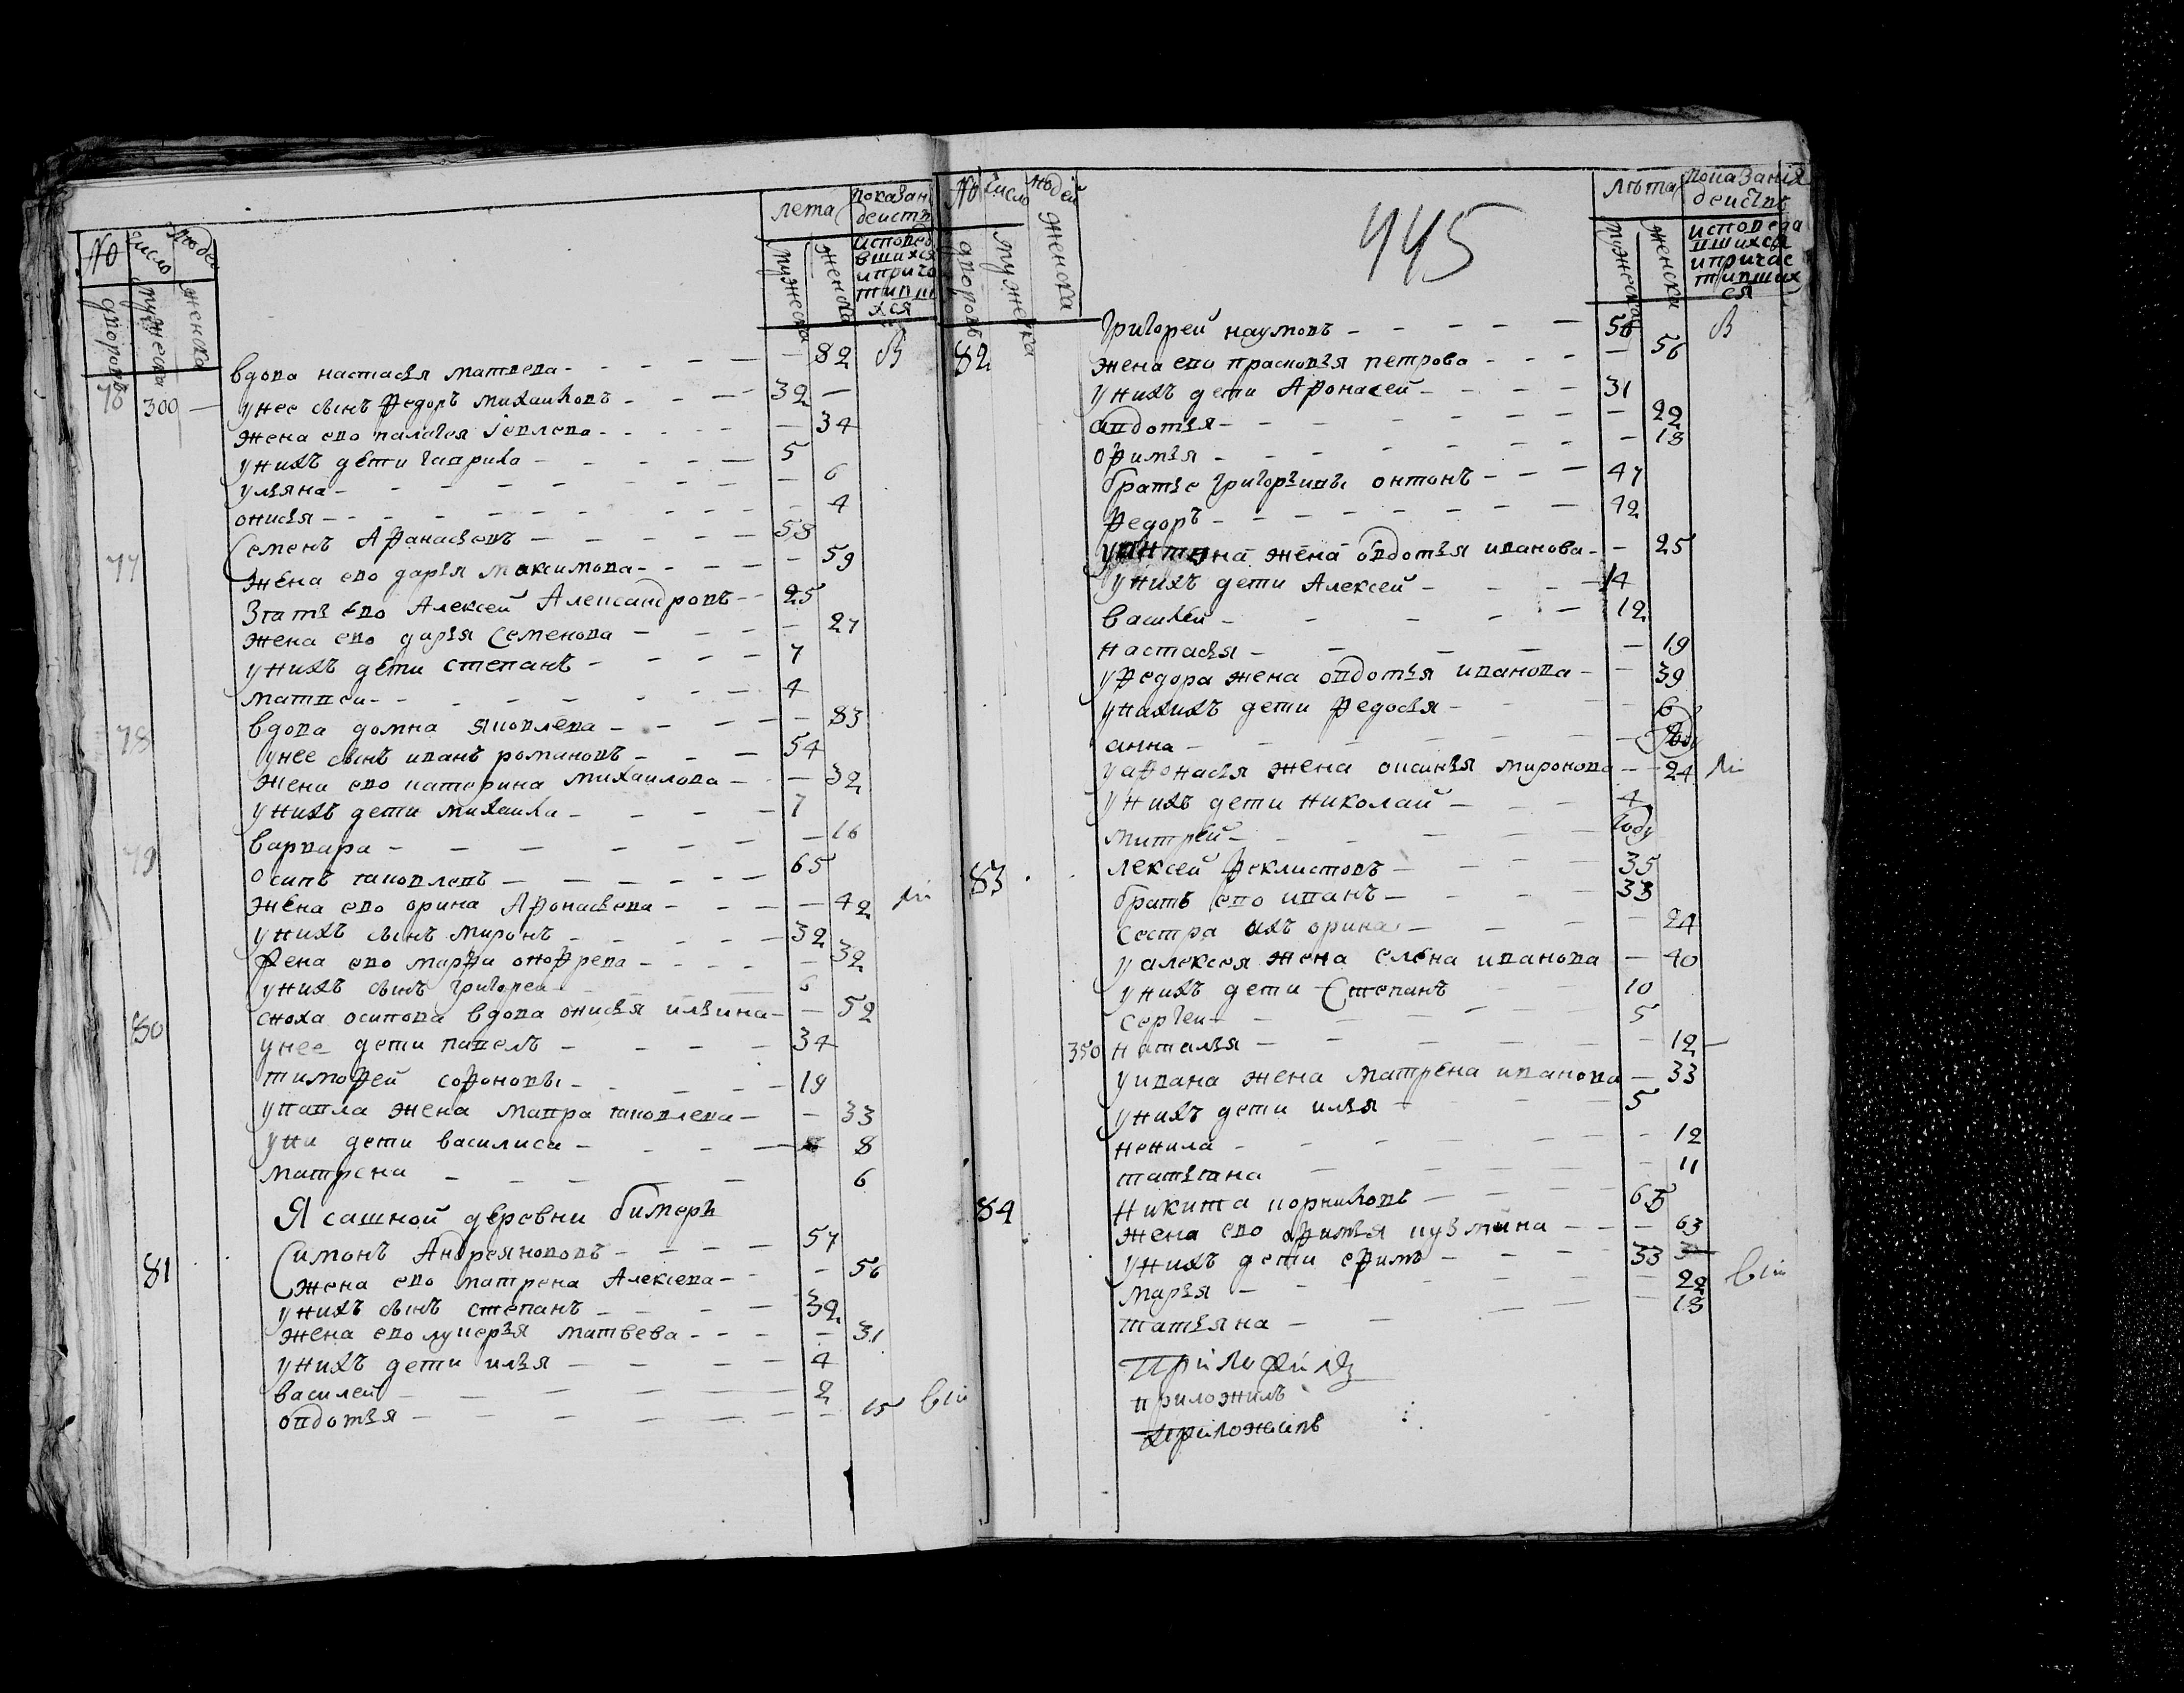 № число людей лета показан деиств
дворовъ мужеска женска мужеска женска исповед вшихся и прича тивши хся
76 300 — вдова настасья матвева — 82 В
у нее сынъ федоръ михаиловъ — 32 —
жена ево палагея иевлева — 34
у нихъ дети гаврила — 5
ульяна — 6
онисья — 4
77 Семенъ Афанасьевъ — 58
жена ево дарья максимова — 59
Зтать ево Алексеи Александровъ — 25
жена ево дарья Семенова — 27
у нихъ дети степанъ — 7
матвеи — 4
78 вдова домна яковлева — 83
у нее сынъ иванъ романовъ — 54
жена ево катерина михаилова — 32
у нихъ дети михаила — 7
варвара — 16
79 осипъ яковлевъ — 65
жена ево орина Афонасьева — 42
у нихъ сынъ миронъ — 32
жена ево марфа онофрева — 32
у нихъ сынъ григореи
80 сноха осипова вдова онисья ильина — 52
у нее дети павелъ — 34
тимофей софоновы — 19
у павла жена мавра яковлева — 33
у ни дети василиса — 8
матрена — 6
Ясашной деревни бимеръ
81 Симонъ Андреяновъ — 57
жена ево матрена Алексева — 56
у нихъ сынъ степанъ — 32
жена ево лукерья матвева — 31
у нихъ дети илья — 4
василей — 2
овдотья — 15
№ число людей 445 лѣта показания деиствъ
дворовъ мужеска женска мужеска женска исповеда вшихся и причас тивших ся
82 григорей наумовъ — 56 В
жена ево прасковья петрова — 56
у нихъ дети Афонасей — 31
авдотья — 22
офимья — 18
братье григорьивы онтонъ — 47
федоръ — 42
у онтона жена овдотья иванова — 25
у нихъ дети Алексей — 14
василей — 12
настасья — 19
у федора жена овдотья иванова — 39
у нихъ дети федосья — 6
анна —
у афонасья жена оксинья миронова — 24
у нихъ дети николай — 4
митрей — году
83 лексей феклистовъ — 35
братъ ево иванъ — 33
сестра ихъ орина — 24
у алексея жена елена иванова — 40
у нихъ дети Степанъ 10
сергеи — 5
350 наталья — 12 —
у ивана жена матрена иванова — 33
у нихъ дети илья — 5
ненила — 12
татьяна — 11
84 никита корниловъ — 65
жена ево офимья кузмина — 63
у нихъ дети ефимъ — 33
марья — 22
татьяна — 18
приложилъ